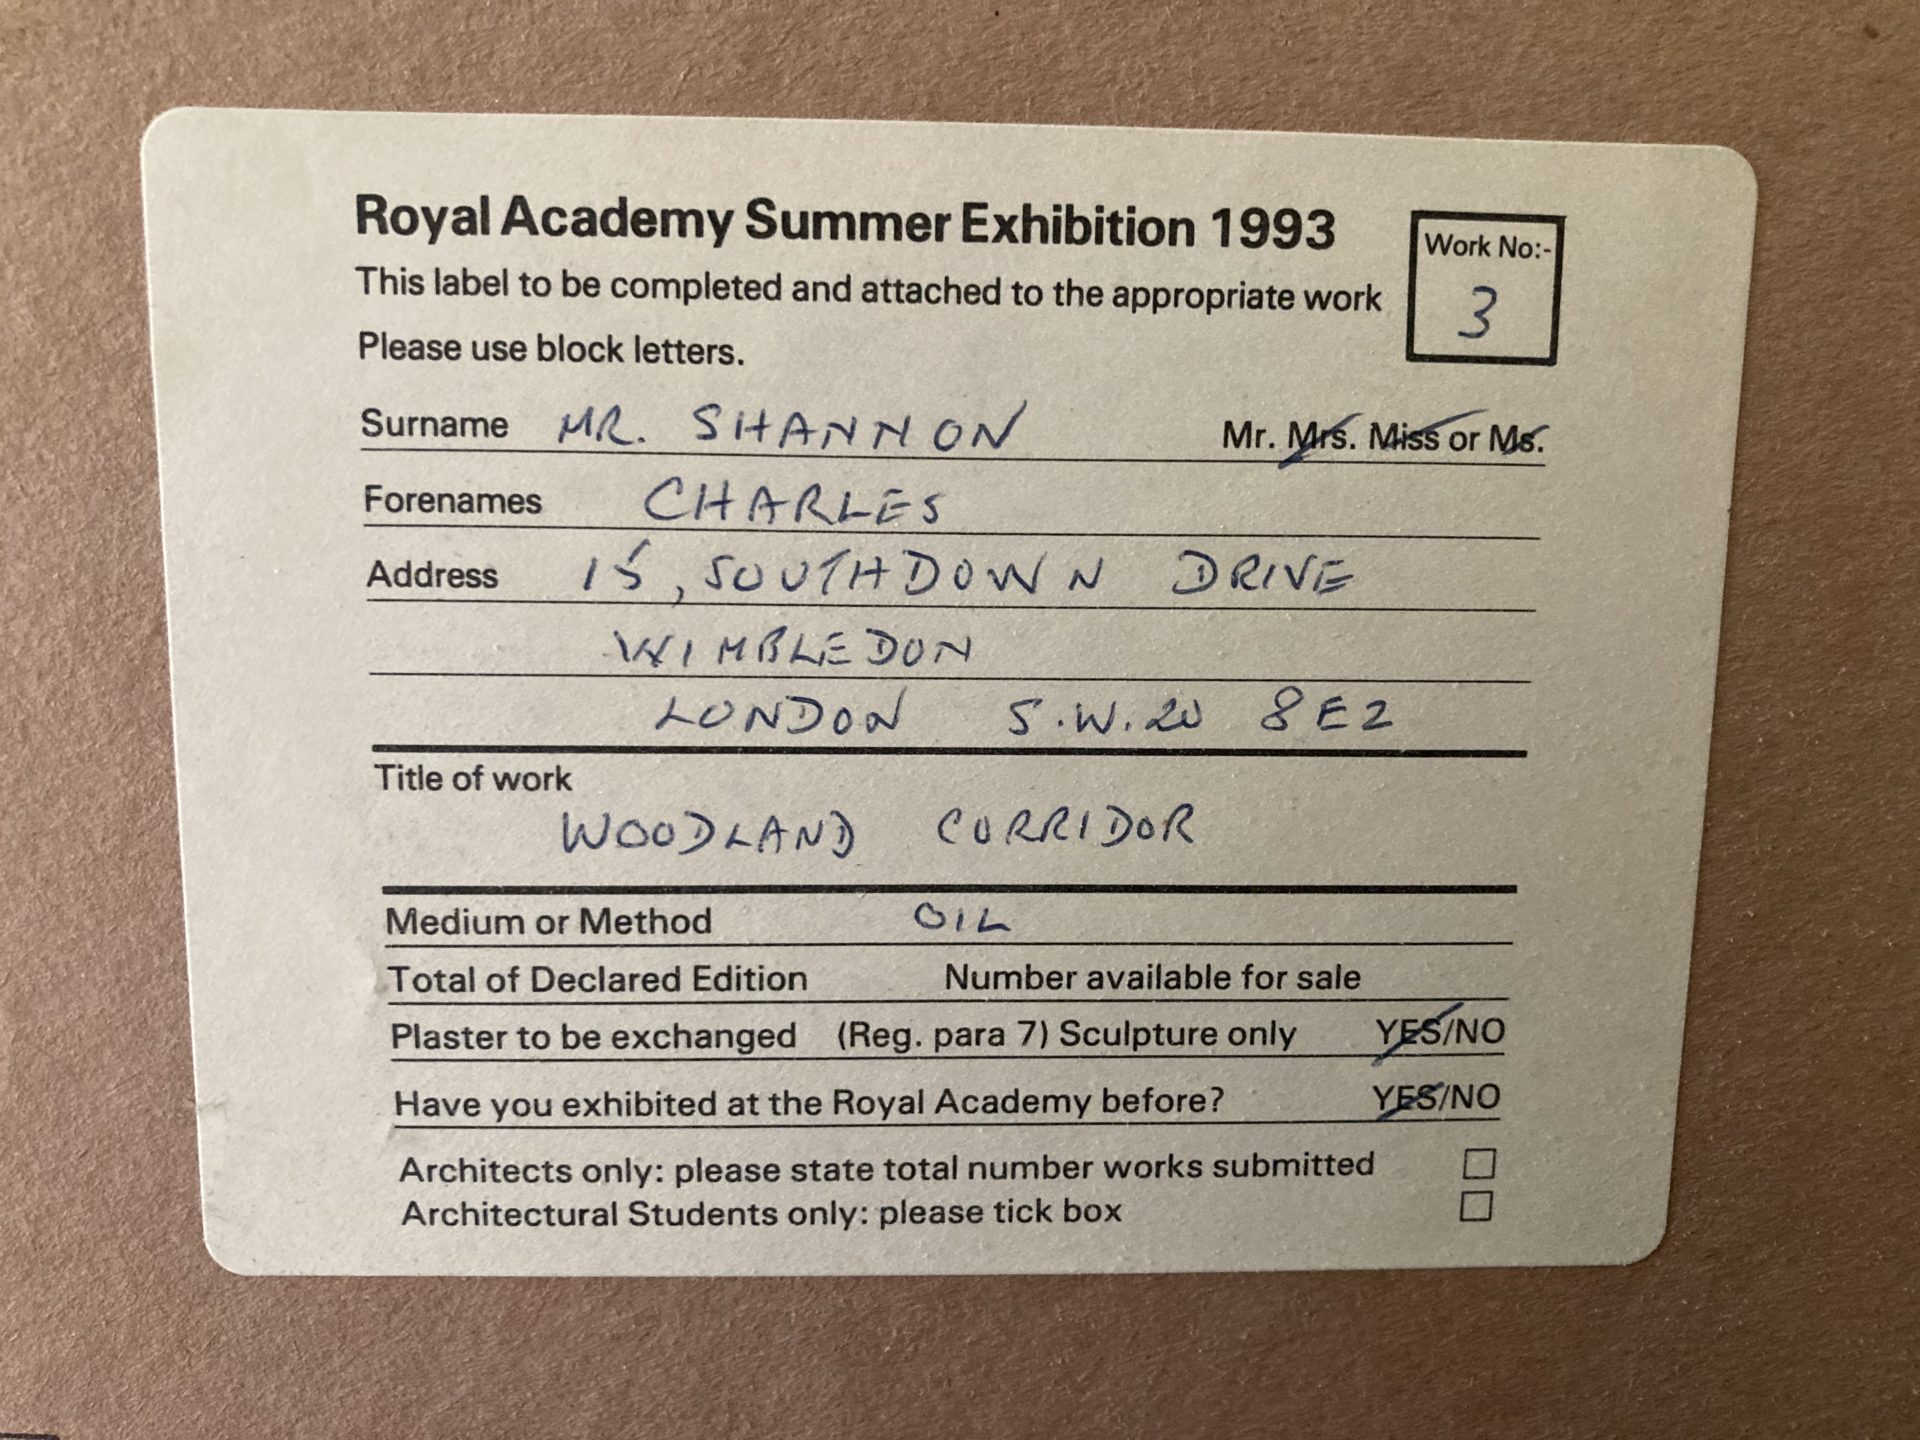 Royal Academy Summer Exhibition 1993
Work No:-
3
This label to be completed and attached to the appropriate work
Please use block letters.
Surname MR. SHANNON Mr. Mrs. Miss or Ms.
Forenames CHARLES
Address 15, SOUTHDOWN DRIVE
WIMBLEDON
LONDON S.W.20 8EZ
Title of work
WOODLAND CORRIDOR
Medium or Method OIL
Total of Declared Edition Number available for sale
Plaster to be exchanged (Reg. para 7) Sculpture only YES/NO
Have you exhibited at the Royal Academy before? YES/NO
Architects only: please state total number works submitted
Architectural Students only: please tick box